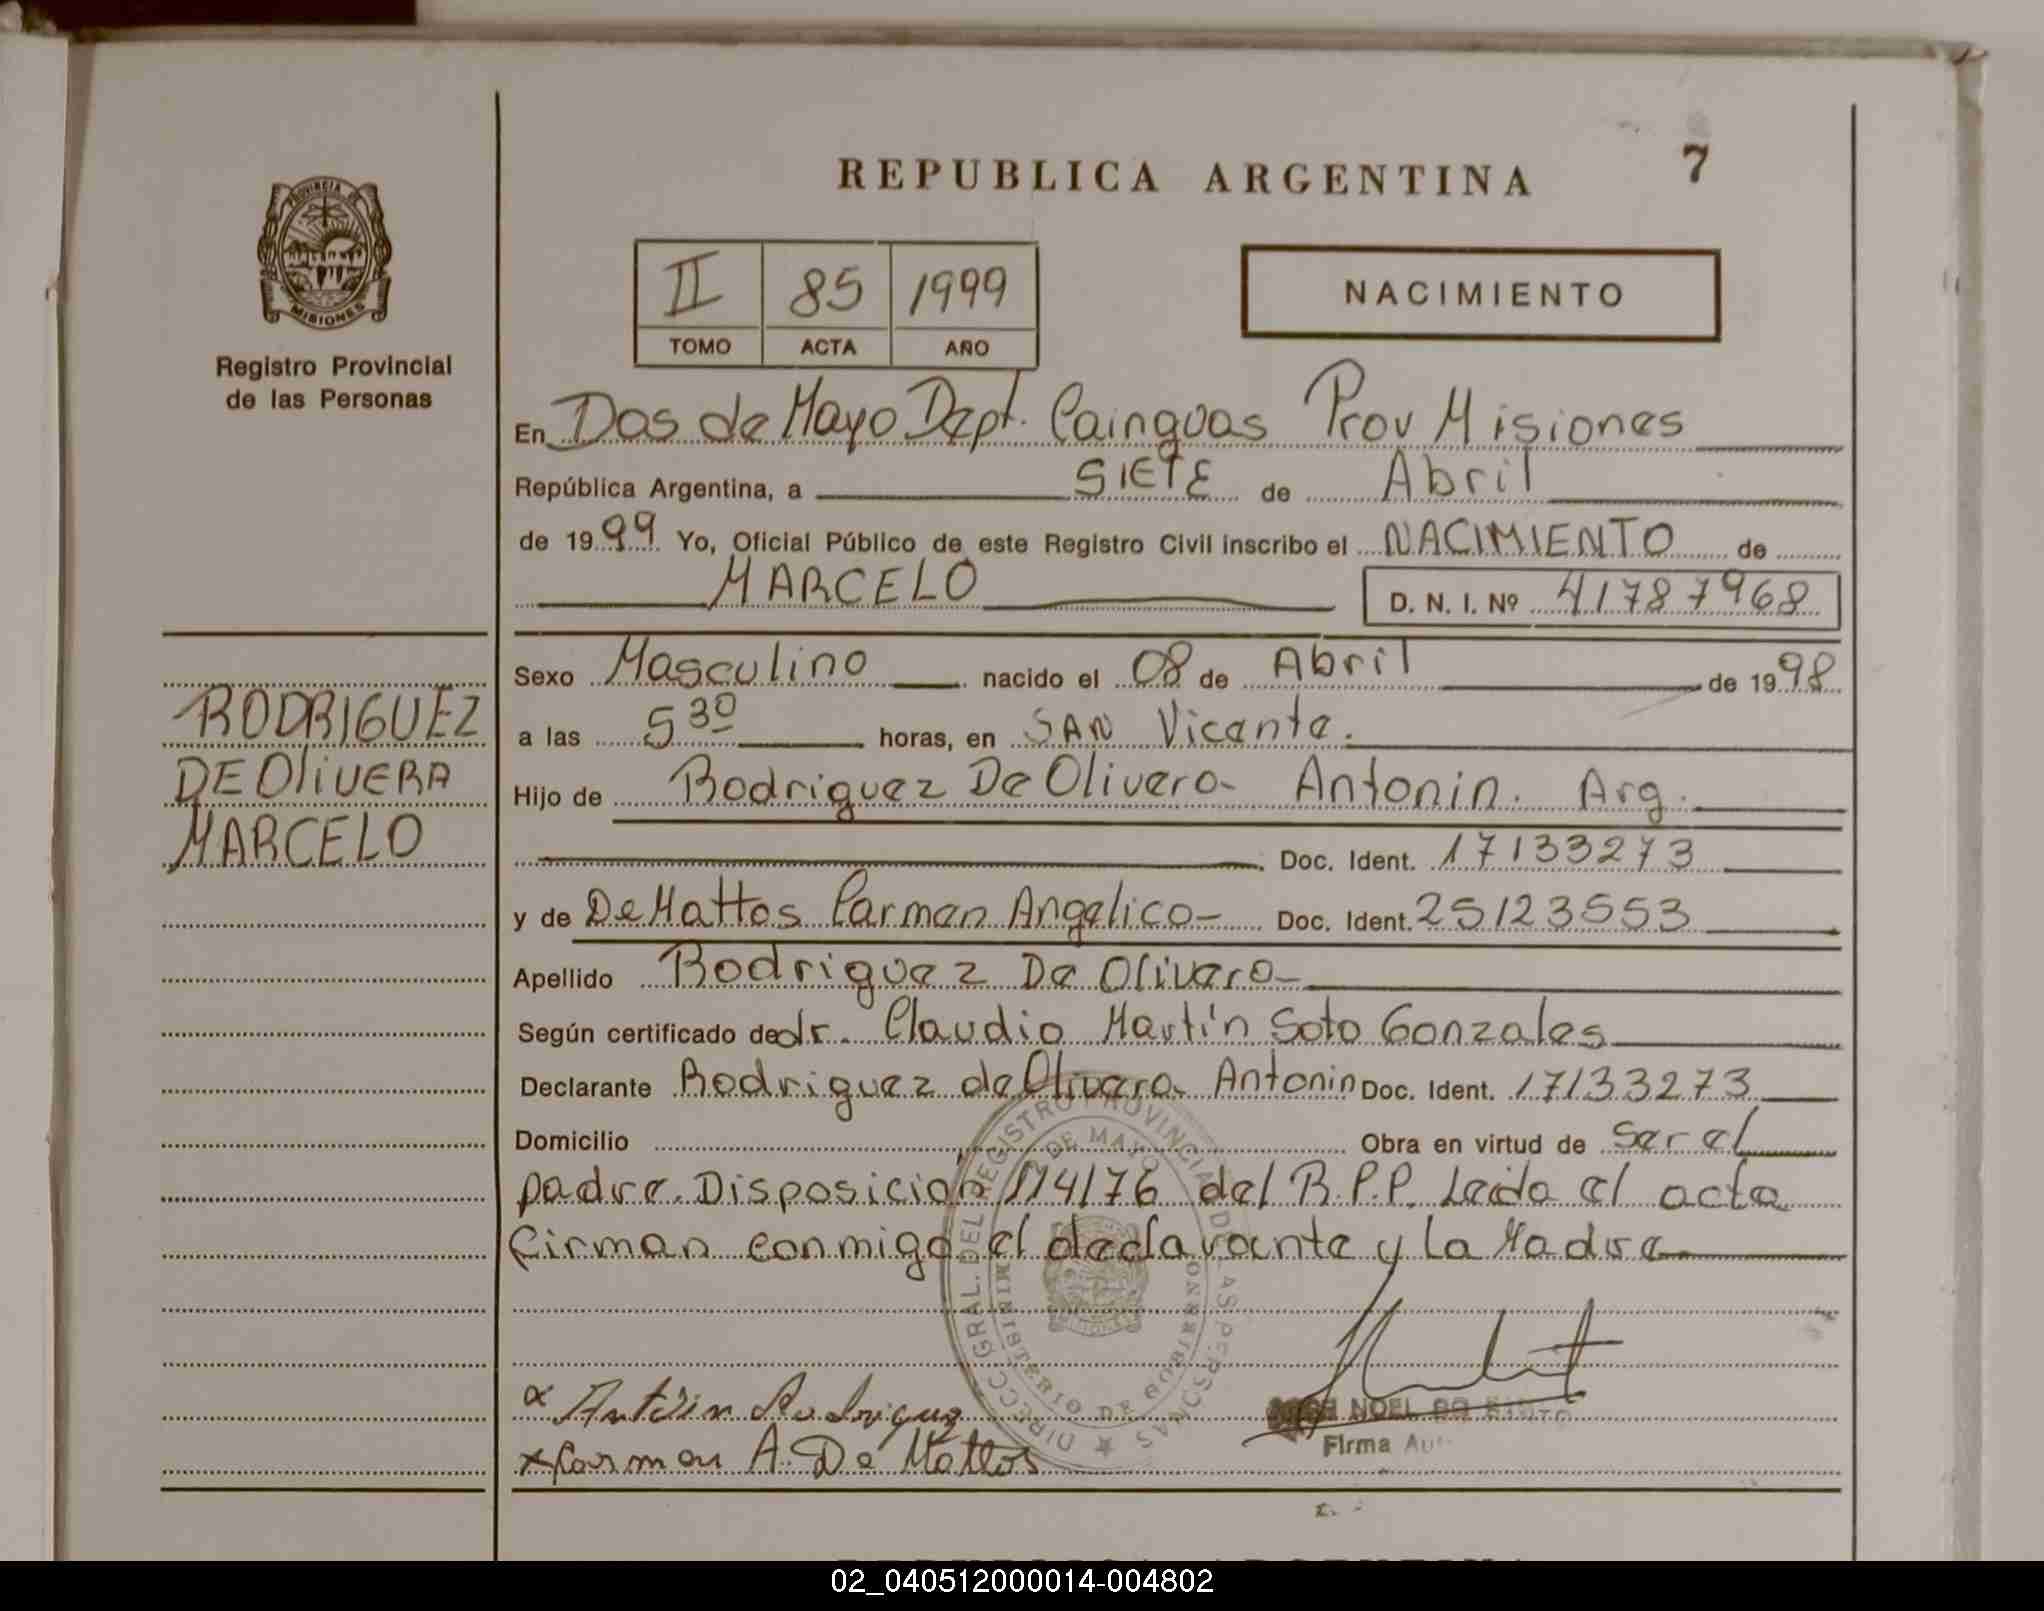 REPUBLICA ARGENTINA
7
PROVINCIA DE
MISIONES
Registro Provincial
de las Personas
II 85 1999
TOMO ACTA AÑO
NACIMIENTO
En Dos de Mayo Dept. Cainguas Prov Misiones
República Argentina, a SIETE de Abril
de 1999 Yo, Oficial Público de este Registro Civil inscribo el NACIMIENTO de
MARCELO
D. N. I. Nº 41787968
RODRIGUEZ
DE OliVERA
MARCELO
Sexo Masculino nacido el 08 de Abril de 1998
a las 5 30 horas, en SAN Vicente.
Hijo de Rodriguez De Olivera Antonin. Arg.
Doc. Ident. 17133273
y de De Mattos Carmen Angelica Doc. Ident. 25123553
Apellido Rodriguez De Olivera
Según certificado de dr. Claudio Martín Soto Gonzales
Declarante Rodriguez de Olivera Antonin Doc. Ident. 17133273
Domicilio Obra en virtud de Ser el
padre. Disposición 114/76 del R.P.P. Leida el acta
firman conmigo el declarante y la Madre
DIRECC GRAL. DEL REGISTRO PROVINCIAL DE LAS PERSONAS
DE MAYO
MINISTERIO DE GOBIERNO
x Antonin Rodriguez
x Carmen A. De Mattos
NOEL
Firma
02_040512000014-004802